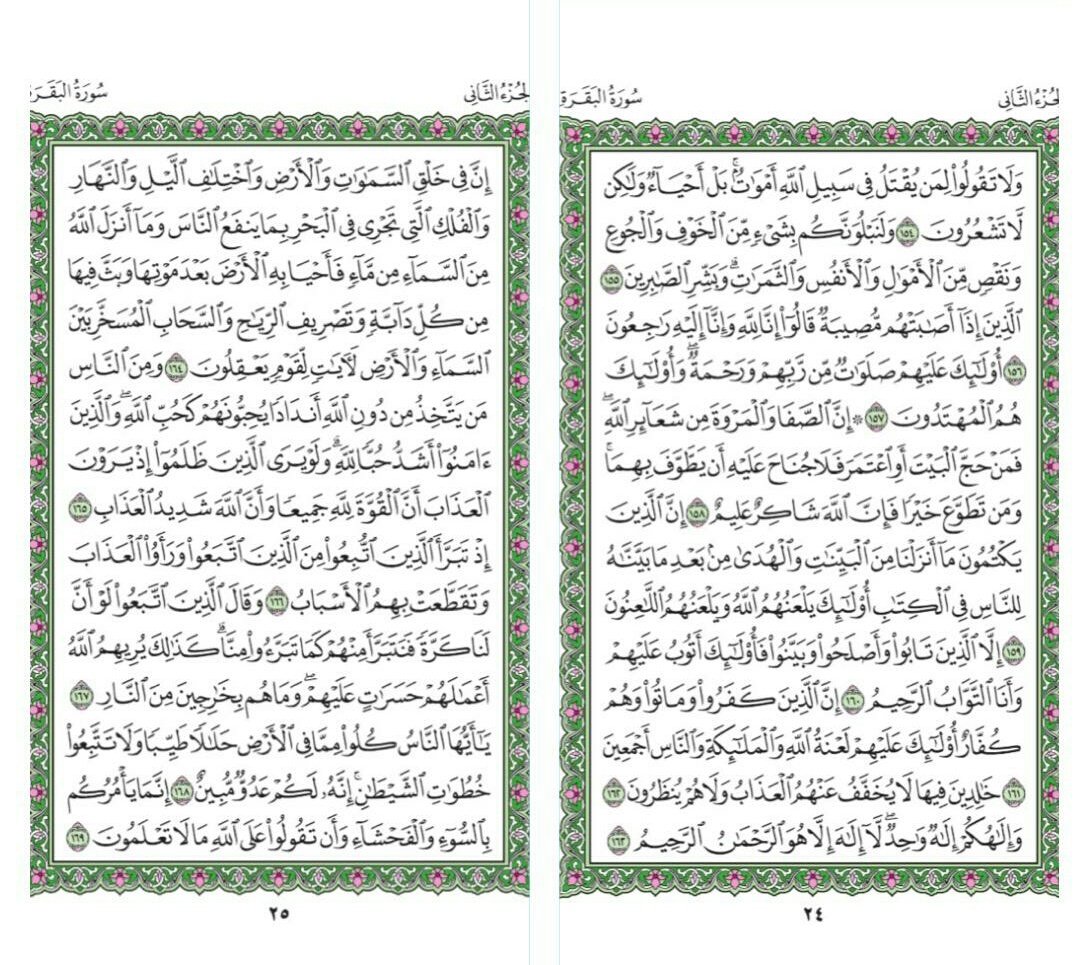 الجزء الثاني
سورة البقرة
وَلَا تَقُولُوا۟ لِمَن يُقْتَلُ فِى سَبِيلِ ٱللَّهِ أَمْوَٰتٌۢ ۚ بَلْ أَحْيَآءٌ وَلَـٰكِن
لَّا تَشْعُرُونَ ١٥٤ وَلَنَبْلُوَنَّكُم بِشَىْءٍ مِّنَ ٱلْخَوْفِ وَٱلْجُوعِ
وَنَقْصٍ مِّنَ ٱلْأَمْوَٰلِ وَٱلْأَنفُسِ وَٱلثَّمَرَٰتِ ۗ وَبَشِّرِ ٱلصَّـٰبِرِينَ ١٥٥
ٱلَّذِينَ إِذَآ أَصَـٰبَتْهُم مُّصِيبَةٌ قَالُوٓا۟ إِنَّا لِلَّهِ وَإِنَّآ إِلَيْهِ رَٰجِعُونَ
١٥٦ أُو۟لَـٰٓئِكَ عَلَيْهِمْ صَلَوَٰتٌ مِّن رَّبِّهِمْ وَرَحْمَةٌ ۖ وَأُو۟لَـٰٓئِكَ
هُمُ ٱلْمُهْتَدُونَ ١٥٧ ۞ إِنَّ ٱلصَّفَا وَٱلْمَرْوَةَ مِن شَعَآئِرِ ٱللَّهِ ۖ
فَمَنْ حَجَّ ٱلْبَيْتَ أَوِ ٱعْتَمَرَ فَلَا جُنَاحَ عَلَيْهِ أَن يَطَّوَّفَ بِهِمَا ۚ
وَمَن تَطَوَّعَ خَيْرًا فَإِنَّ ٱللَّهَ شَاكِرٌ عَلِيمٌ ١٥٨ إِنَّ ٱلَّذِينَ
يَكْتُمُونَ مَآ أَنزَلْنَا مِنَ ٱلْبَيِّنَـٰتِ وَٱلْهُدَىٰ مِنۢ بَعْدِ مَا بَيَّنَّـٰهُ
لِلنَّاسِ فِى ٱلْكِتَـٰبِ أُو۟لَـٰٓئِكَ يَلْعَنُهُمُ ٱللَّهُ وَيَلْعَنُهُمُ ٱللَّـٰعِنُونَ
١٥٩ إِلَّا ٱلَّذِينَ تَابُوا۟ وَأَصْلَحُوا۟ وَبَيَّنُوا۟ فَأُو۟لَـٰٓئِكَ أَتُوبُ عَلَيْهِمْ
وَأَنَا ٱلتَّوَّابُ ٱلرَّحِيمُ ١٦٠ إِنَّ ٱلَّذِينَ كَفَرُوا۟ وَمَاتُوا۟ وَهُمْ
كُفَّارٌ أُو۟لَـٰٓئِكَ عَلَيْهِمْ لَعْنَةُ ٱللَّهِ وَٱلْمَلَـٰٓئِكَةِ وَٱلنَّاسِ أَجْمَعِينَ
١٦١ خَـٰلِدِينَ فِيهَا لَا يُخَفَّفُ عَنْهُمُ ٱلْعَذَابُ وَلَا هُمْ يُنظَرُونَ ١٦٢
وَإِلَـٰهُكُمْ إِلَـٰهٌ وَٰحِدٌ ۖ لَّآ إِلَـٰهَ إِلَّا هُوَ ٱلرَّحْمَـٰنُ ٱلرَّحِيمُ ١٦٣
٢٤
الجزء الثاني
سورة البقرة
إِنَّ فِى خَلْقِ ٱلسَّمَـٰوَٰتِ وَٱلْأَرْضِ وَٱخْتِلَـٰفِ ٱلَّيْلِ وَٱلنَّهَارِ
وَٱلْفُلْكِ ٱلَّتِى تَجْرِى فِى ٱلْبَحْرِ بِمَا يَنفَعُ ٱلنَّاسَ وَمَآ أَنزَلَ ٱللَّهُ
مِنَ ٱلسَّمَآءِ مِن مَّآءٍ فَأَحْيَا بِهِ ٱلْأَرْضَ بَعْدَ مَوْتِهَا وَبَثَّ فِيهَا
مِن كُلِّ دَآبَّةٍ وَتَصْرِيفِ ٱلرِّيَـٰحِ وَٱلسَّحَابِ ٱلْمُسَخَّرِ بَيْنَ
ٱلسَّمَآءِ وَٱلْأَرْضِ لَـَٔايَـٰتٍ لِّقَوْمٍ يَعْقِلُونَ ١٦٤ وَمِنَ ٱلنَّاسِ
مَن يَتَّخِذُ مِن دُونِ ٱللَّهِ أَندَادًا يُحِبُّونَهُمْ كَحُبِّ ٱللَّهِ ۖ وَٱلَّذِينَ
ءَامَنُوٓا۟ أَشَدُّ حُبًّا لِّلَّهِ ۗ وَلَوْ يَرَى ٱلَّذِينَ ظَلَمُوٓا۟ إِذْ يَرَوْنَ
ٱلْعَذَابَ أَنَّ ٱلْقُوَّةَ لِلَّهِ جَمِيعًا وَأَنَّ ٱللَّهَ شَدِيدُ ٱلْعَذَابِ ١٦٥
إِذْ تَبَرَّأَ ٱلَّذِينَ ٱتُّبِعُوا۟ مِنَ ٱلَّذِينَ ٱتَّبَعُوا۟ وَرَأَوُا۟ ٱلْعَذَابَ
وَتَقَطَّعَتْ بِهِمُ ٱلْأَسْبَابُ ١٦٦ وَقَالَ ٱلَّذِينَ ٱتَّبَعُوا۟ لَوْ أَنَّ
لَنَا كَرَّةً فَنَتَبَرَّأَ مِنْهُمْ كَمَا تَبَرَّءُوا۟ مِنَّا ۗ كَذَٰلِكَ يُرِيهِمُ ٱللَّهُ
أَعْمَـٰلَهُمْ حَسَرَٰتٍ عَلَيْهِمْ ۖ وَمَا هُم بِخَـٰرِجِينَ مِنَ ٱلنَّارِ ١٦٧
يَـٰٓأَيُّهَا ٱلنَّاسُ كُلُوا۟ مِمَّا فِى ٱلْأَرْضِ حَلَـٰلًا طَيِّبًا وَلَا تَتَّبِعُوا۟
خُطُوَٰتِ ٱلشَّيْطَـٰنِ ۚ إِنَّهُۥ لَكُمْ عَدُوٌّ مُّبِينٌ ١٦٨ إِنَّمَا يَأْمُرُكُم
بِٱلسُّوٓءِ وَٱلْفَحْشَآءِ وَأَن تَقُولُوا۟ عَلَى ٱللَّهِ مَا لَا تَعْلَمُونَ ١٦٩
٢٥